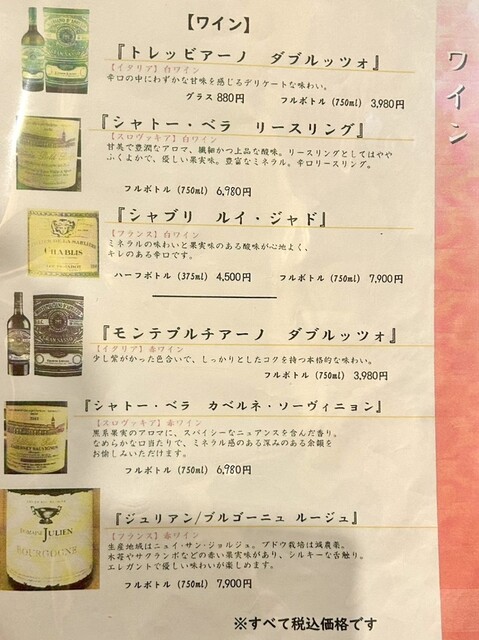 【ワイン】
ワイン
『トレッビアーノ ダブルッツォ』
【イタリア】白ワイン
辛口の中にわずかな甘味を感じるデリケートな味わい。
グラス 880円 フルボトル (750ml) 3,980円
『シャトー・ベラ リースリング』
【スロヴァキア】白ワイン
甘美で豊潤なアロマ、繊細かつ上品な酸味。リースリングとしてはやや
ふくよかで、優しい果実味。豊富なミネラル。辛口リースリング。
フルボトル (750ml) 6,980円
『シャブリ ルイ・ジャド』
【フランス】白ワイン
ミネラルの味わいと果実味のある酸味が心地よく、
キレのある辛口です。
ハーフボトル (375ml) 4,500円 フルボトル (750ml) 7,900円
CHABLIS
『モンテプルチアーノ ダブルッツォ』
【イタリア】赤ワイン
少し紫がかった色合いで、しっかりとしたコクを持つ本格的な味わい。
フルボトル (750ml) 3,980円
『シャトー・ベラ カベルネ・ソーヴィニョン』
【スロヴァキア】赤ワイン
黒系果実のアロマに、スパイシーなニュアンスを含んだ香り。
なめらかな口当たりで、ミネラル感のある深みのある余韻を
お愉しみいただけます。
フルボトル (750ml) 6,980円
『ジュリアン/ブルゴーニュ ルージュ』
【フランス】赤ワイン
生産地域はニュイ・サン・ジョルジュ。ブドウ栽培は減農薬。
木苺やサクランボなどの赤い果実味があり、シルキーな舌触り。
エレガントで優しい味わいが楽しめます。
フルボトル (750ml) 7,900円
DOMAINE JULIEN
BOURGOGNE
※すべて税込価格です